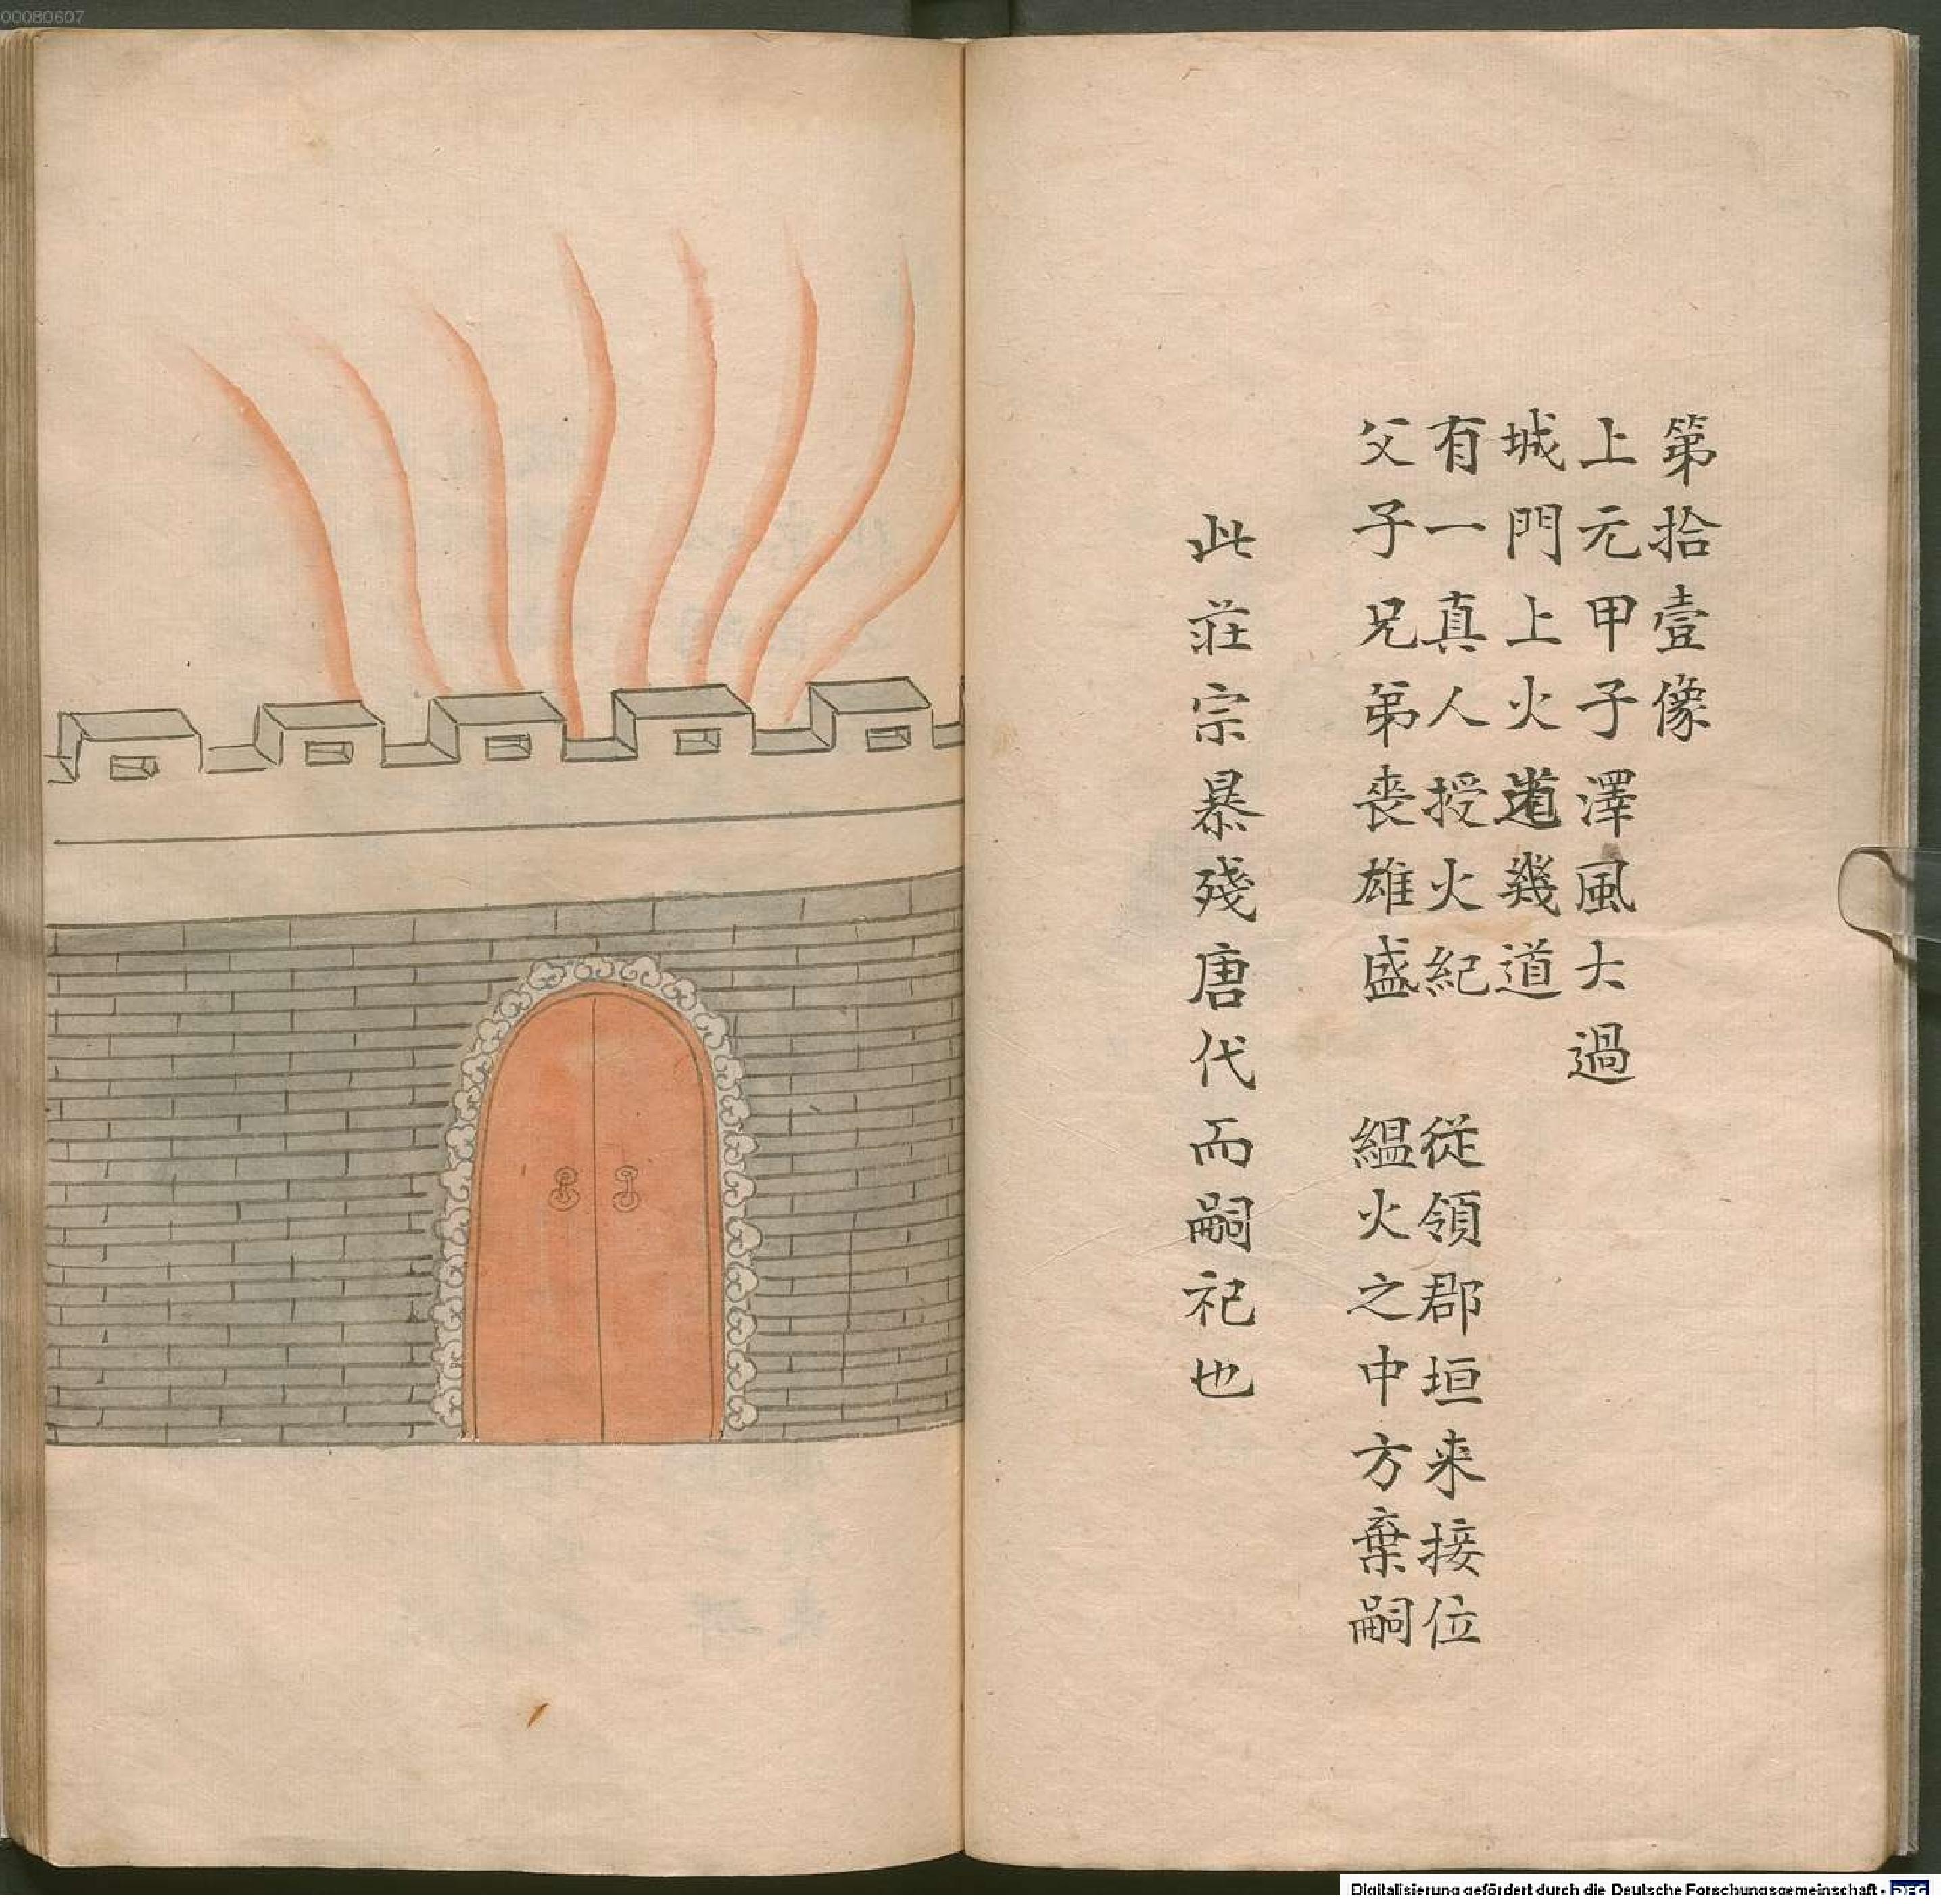 00080607
第拾壹像
上元甲子澤風大過
城門上火道幾道
有一真人授火紀　從領郡垣来接位
父子兄弟喪雄盛　緼火之中方棄嗣
此莊宗暴殘唐代而嗣祀也
Digitalisierung gefördert durch die Deutsche Forschungsgemeinschaft - DFG